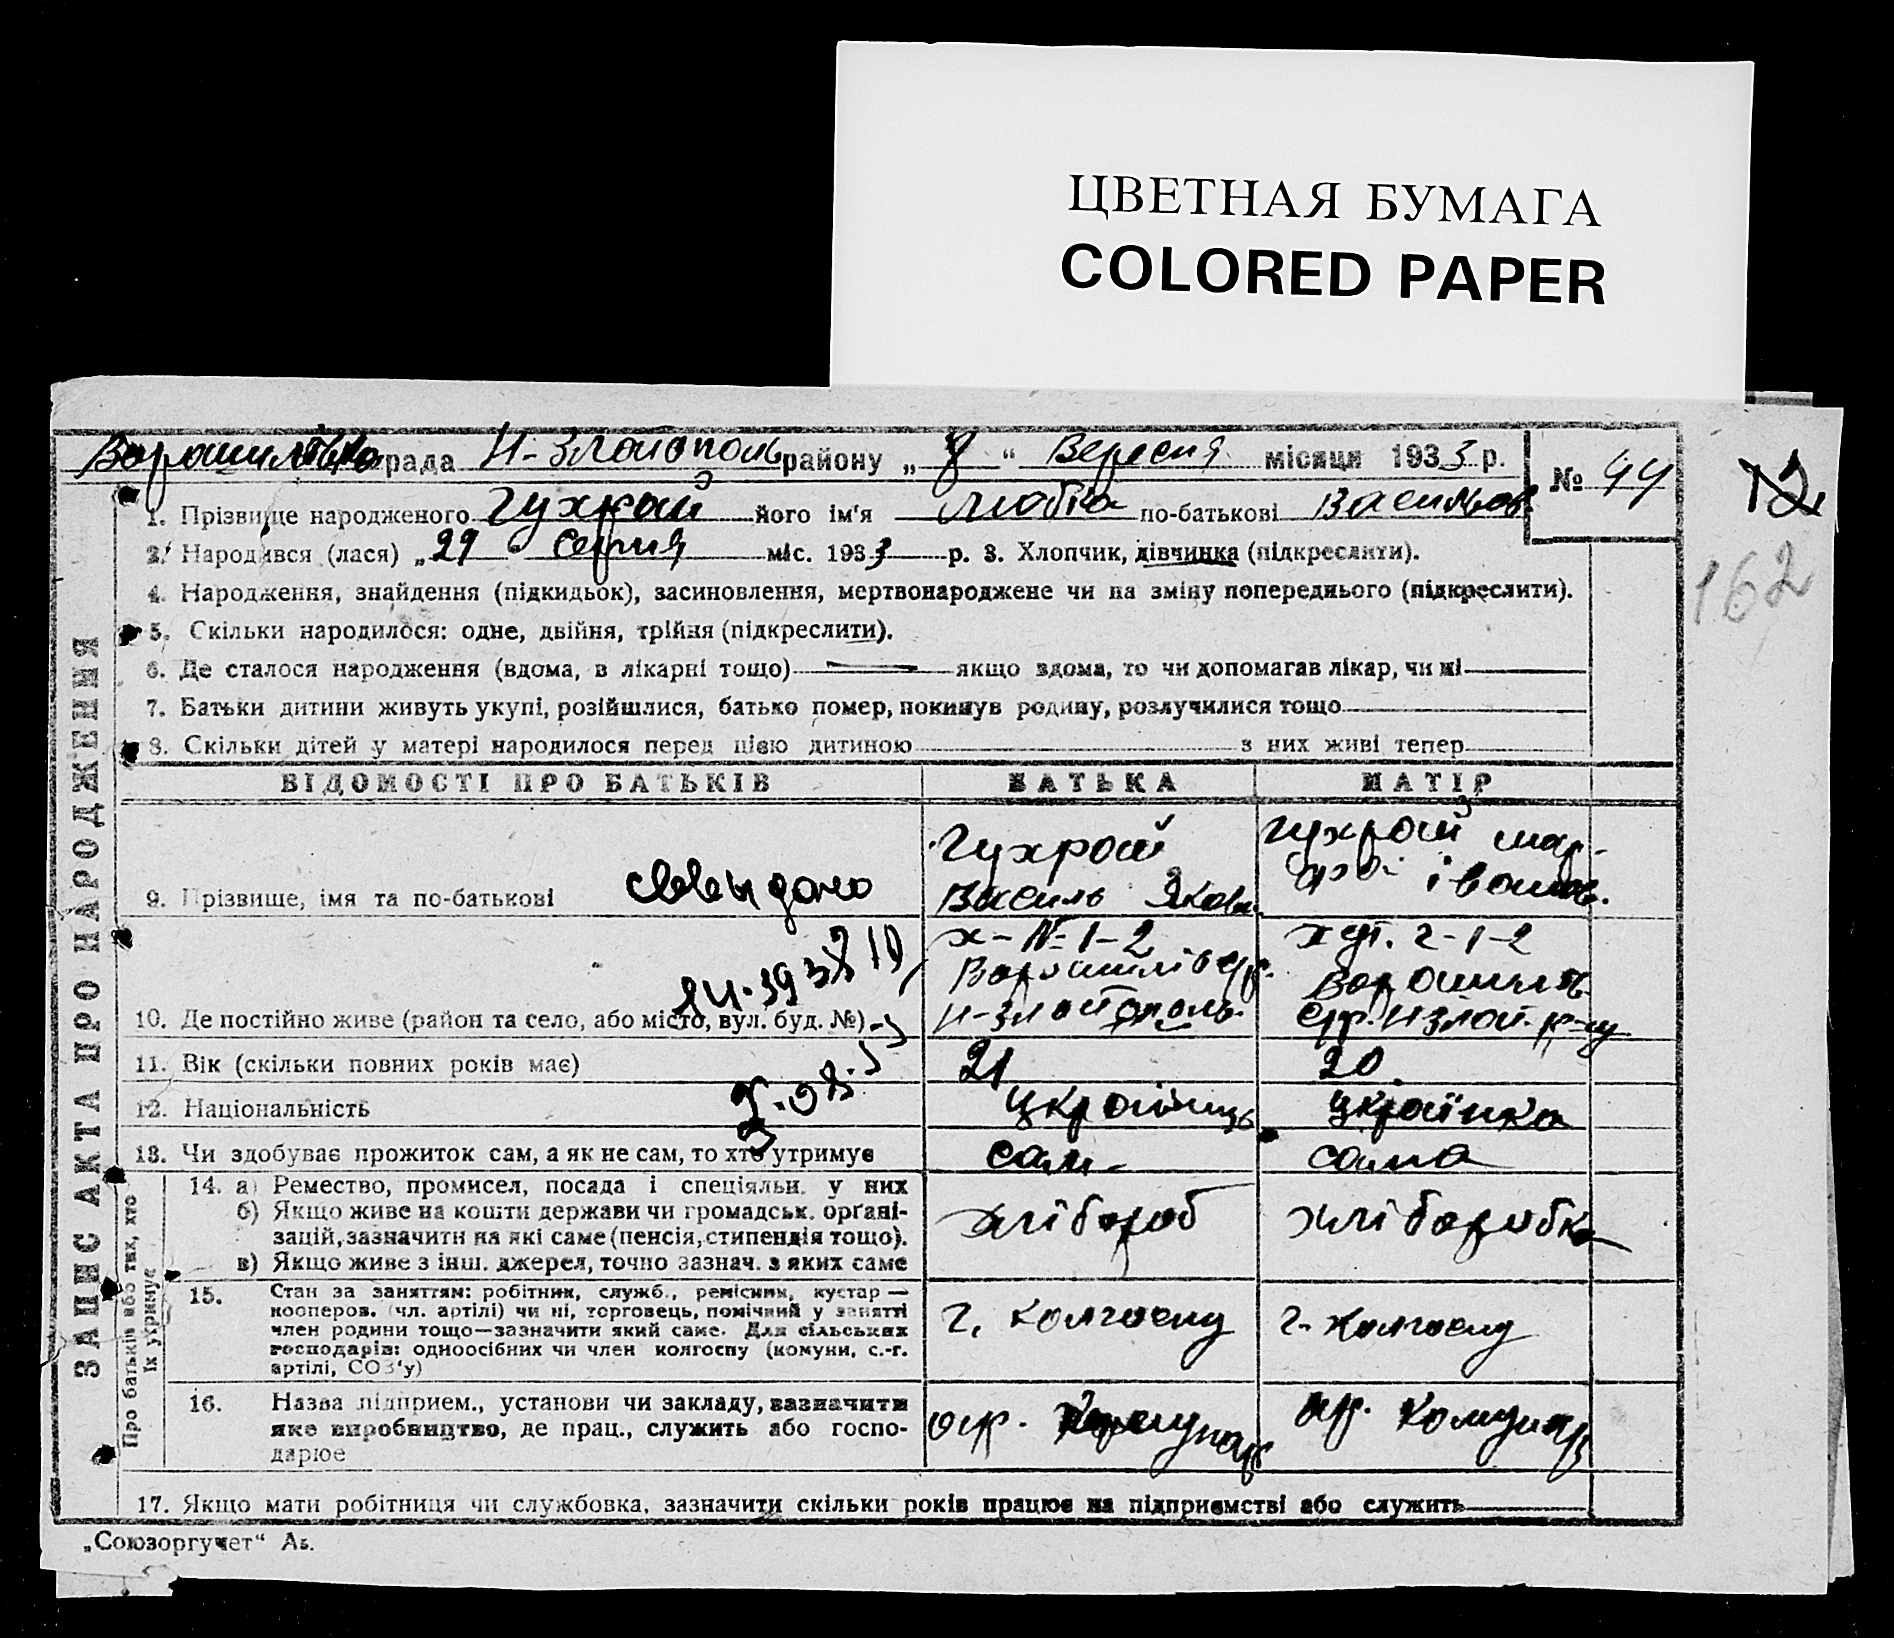 ЦВЕТНАЯ БУМАГА
COLORED PAPER
рада Н-Златополь району „ 8 “ Вересня місяця 1933 р. № 44
12
162
1. Прізвище народженого Чухрай його ім'я Любка по-батькові Васильов.
2. Народився (лася) „29 серпня міс. 1933 р. 3. Хлопчик, дівчинка (підкреслити).
4. Народження, знайдення (підкидьок), засиновлення, мертвонароджене чи на зміну попереднього (підкреслити).
5. Скільки народилося: одне, двійня, трійня (підкреслити).
6. Де сталося народження (вдома, в лікарні тощо) якщо вдома, то чи допомагав лікар, чи ні
7. Батьки дитини живуть укупі, розійшлися, батько помер, покинув родину, розлучилися тощо
8. Скільки дітей у матері народилося перед цією дитиною з них живі тепер
ВІДОМОСТІ ПРО БАТЬКІВ БАТЬКА МАТІР
ЗАПИС АКТА ПРО НАРОДЖЕННЯ
9. Прізвище, імя та по-батькові
Чухрай
Василь Яковл.
Чухрай
10. Де постійно живе (район та село, або місто, вул. буд. №)
х-№ 1-2
11. Вік (скільки повних років має) 21 20
12. Національність українець українка
13. Чи здобуває прожиток сам, а як не сам, то хто утримує сам сама
Про батьків або тих, хто
їх утримує
14. а) Ремество, промисел, посада і спеціяльн. у них
б) Якщо живе на кошти держави чи громадськ. орґані-
зацій, зазначити на які саме (пенсія, стипендія тощо).
в) Якщо живе з інш. джерел, точно зазнач. з яких саме
хлібороб хліборобка
15. Стан за заняттям: робітник, служб., ремісник, кустар —
кооперов. (чл. артілі) чи ні, торговець, помічний у занятті
член родини тощо—зазначити який саме. Для сільських
господарів: одноосібних чи член колгоспу (комуни, с.-г.
артілі, СОЗ'у)
ч. колгоспу ч. колгоспу
16. Назва підприєм., установи чи закладу, зазначити
яке виробництво, де прац., служить або госпо-
дарює
17. Якщо мати робітниця чи службовка, зазначити скільки років працює на підприємстві або служить
„Союзоргучет“ Аз.